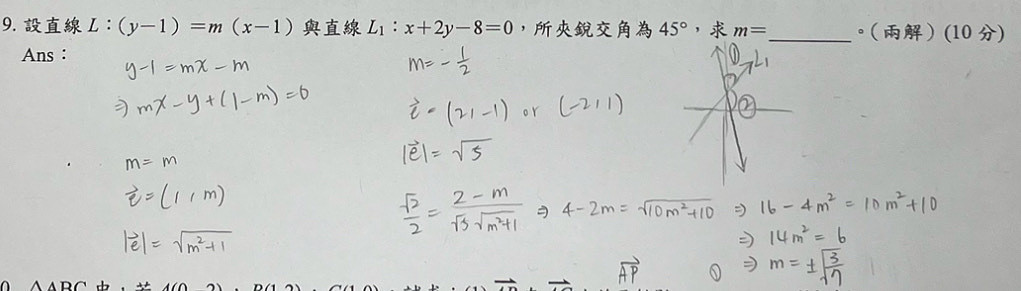 9. 設直線 L：(y－1) ＝m (x－1) 與直線 L₁：x＋2y－8＝0，所夾銳交角為 45°，求 m＝______。(兩解) (10 分)
Ans：
y-1=mx-m
⇒ mx-y+(1-m)=0
m= m
e⃗=(1,m)
|e⃗|=√(m²+1)
m=-1/2
e⃗=(2,-1) or (-2,1)
|e⃗|=√5
√2/2 = (2-m)/(√5 √(m²+1)) ⇒ 4-2m=√(10m²+10) ⇒ 16-4m²=10m²+10
⇒ 14m²=6
⇒ m=±√(3/7)
① L₁
②
AP⃗
①
△ABC 中，若 A(0,-2)，B(1,2)，C(1,0)